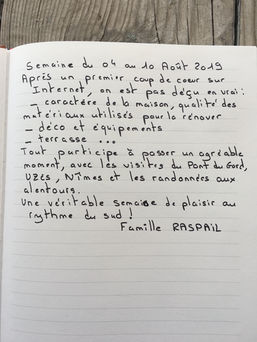 Semaine du 04 au 10 Août 2019
Après un premier coup de coeur sur
Internet, on est pas déçu en vrai :
_ caractère de la maison, qualité des
matériaux utilisés pour la rénover
_ déco et équipements
_ terrasse ...
Tout participe à passer un agréable
moment, avec les visites du Pont du Gard,
Uzès, Nîmes et les randonnées aux
alentours.
Une véritable semaine de plaisir au
rythme du sud !
Famille RASPAIL